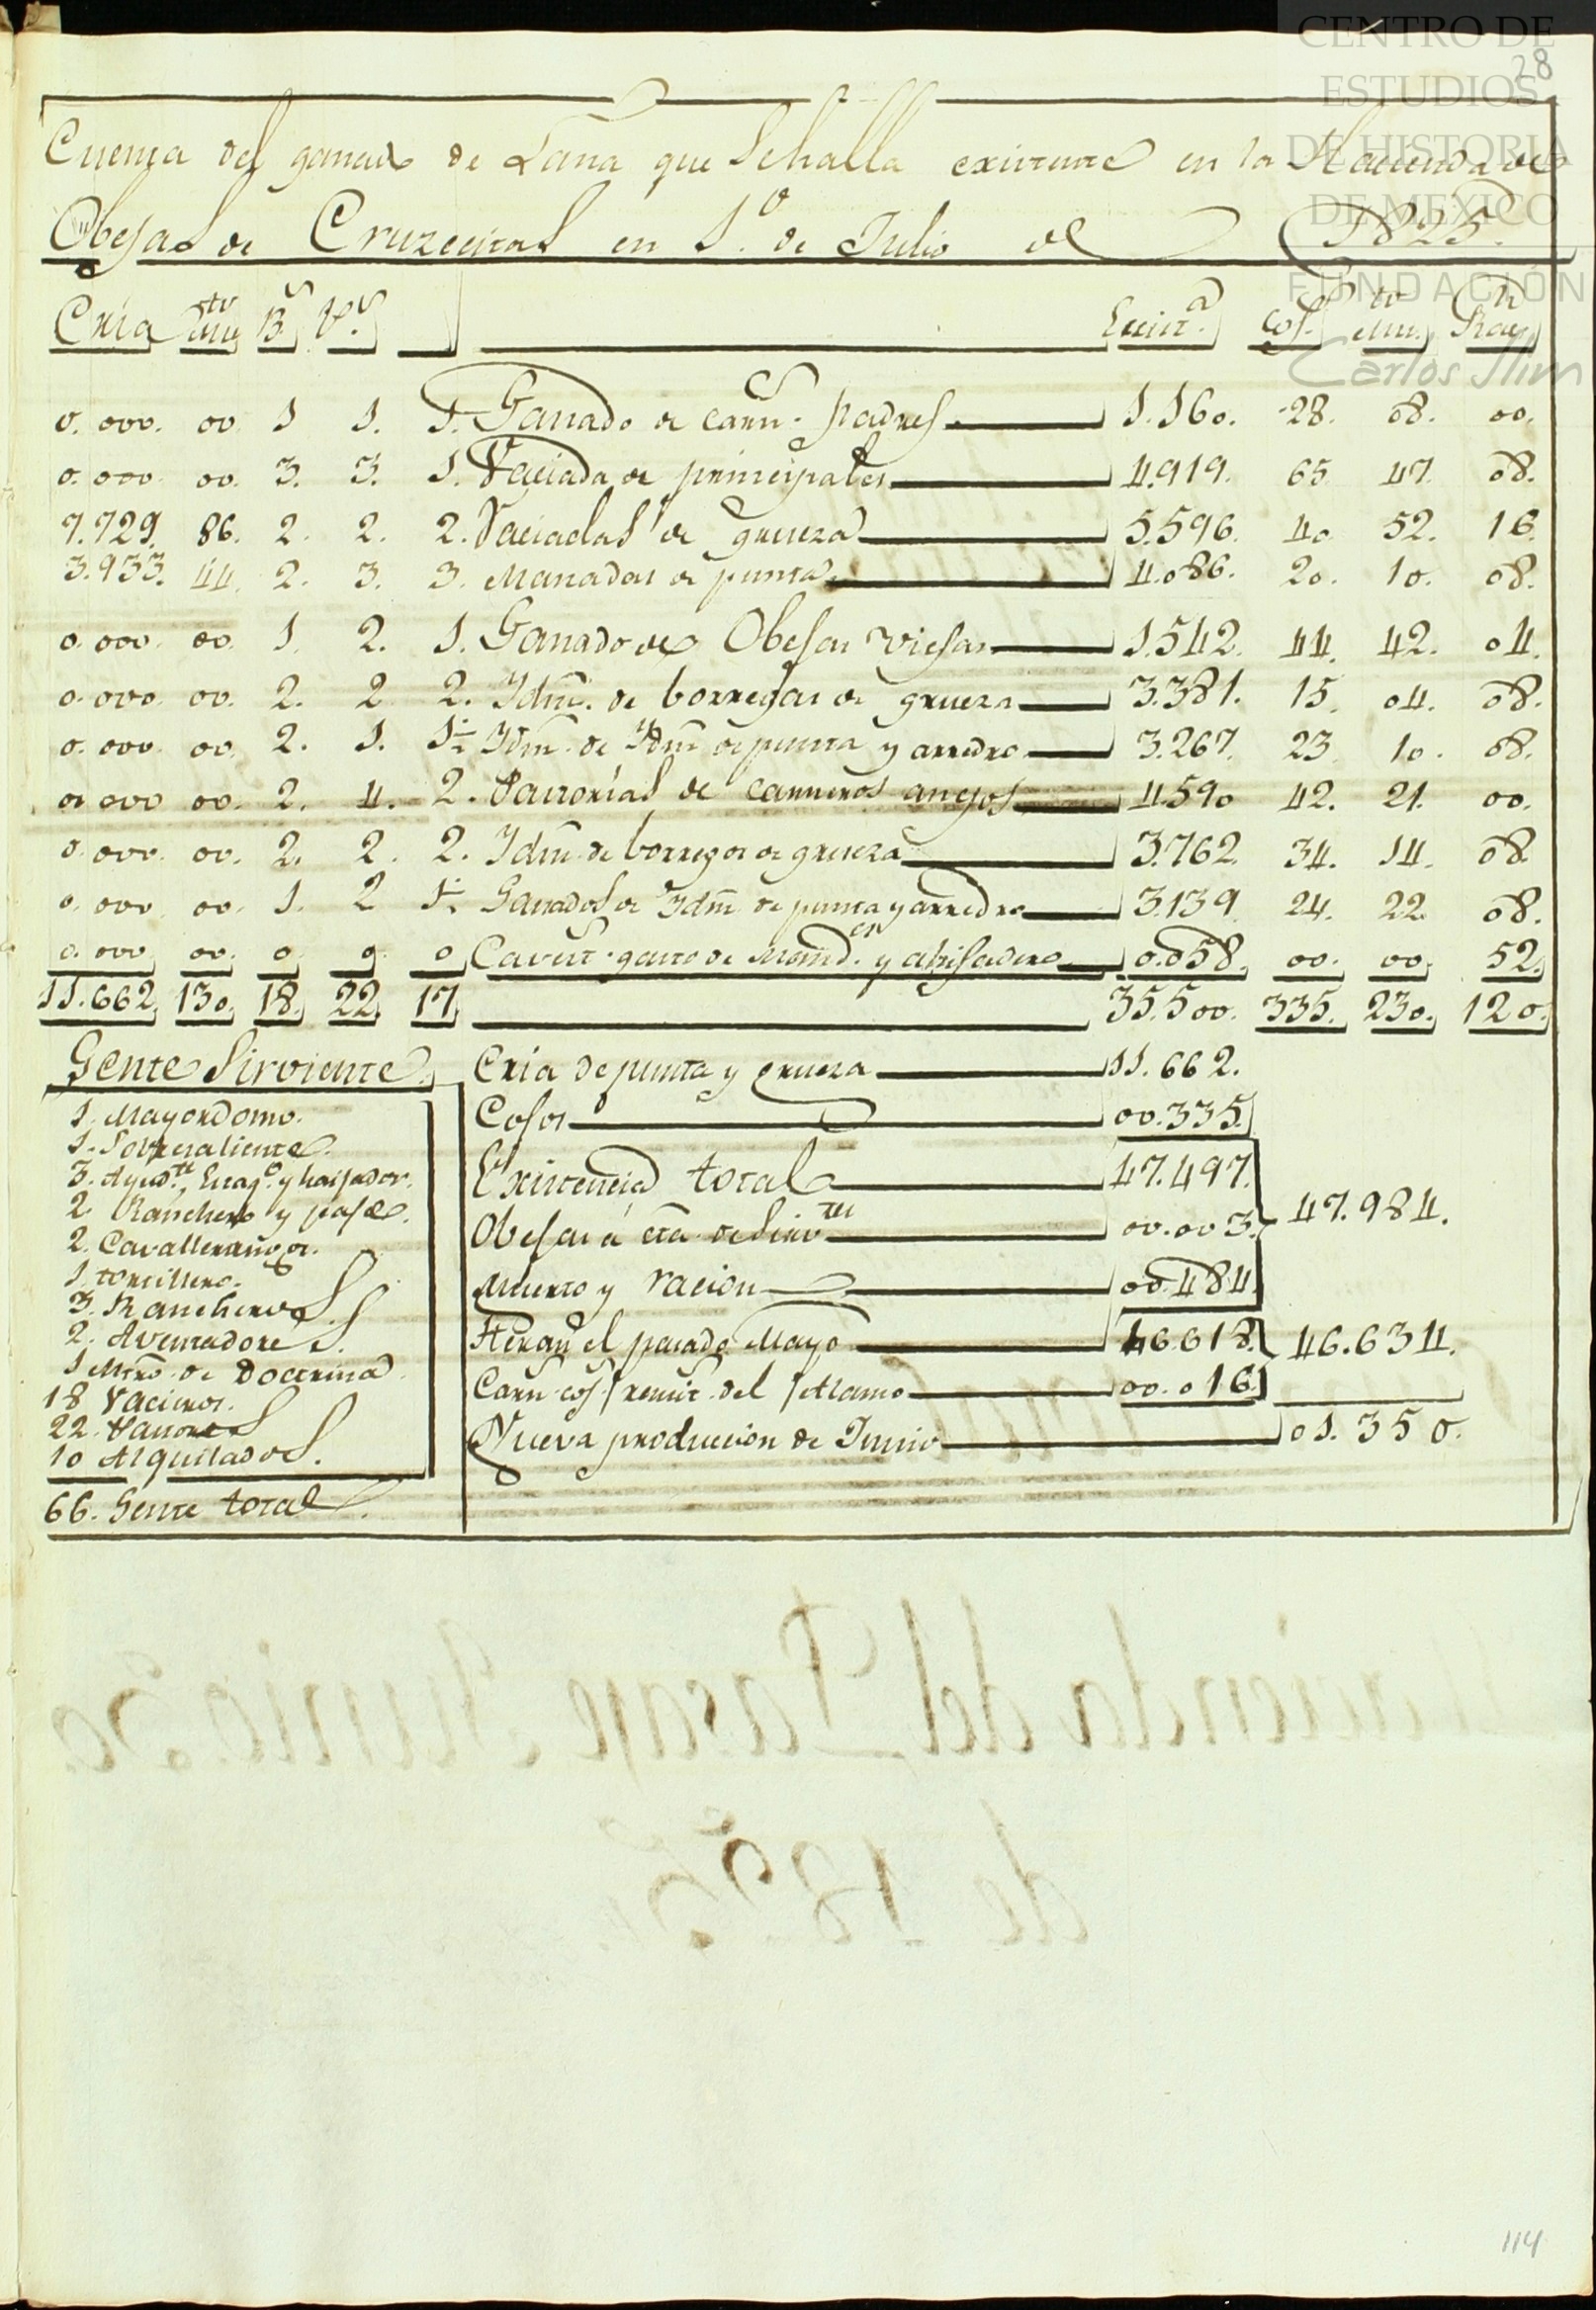 CENTRO DE
ESTUDIOS
DE HISTORIA
DE MEXICO
FUNDACIÓN
Carlos Slim
28
Cuenta del ganado de Lana que Sehalla existente en la Hacienda de
Obejas de Cruzecitas en 1.º de Julio de 1825.
Cria Mu.to B.s P.s Exist.a Cos. Mu.to Rac.n
0.000. 00 1 1. 1. Ganado de carn.s padres 1.160. 28. 08. 00.
0.000 00. 3. 3. 1. Vaciada de principales 4.919. 65 47. 08.
7.729. 86. 2. 2. 2. Vaciadas de grueza 5.596. 40 52. 16.
3.933. 44. 2. 3. 3. Manadas de punta 4.086. 20. 10. 08.
0.000. 00. 1. 2. 1. Ganado de Obejas viejas 1.542. 44. 42. 04.
0.000 00. 2. 2 2. Ydm. de borregas de grueza 3.381. 15. 04. 08.
0.000 00. 2. 1. 1. Ydm. de Ydm de punta y arredro 3.267. 23 10. 08.
0.000 00. 2. 4. 2. Pastorías de carneros anejos 4.590 42. 21. 00.
0.000. 00. 2. 2. 2. Ydm. de borregos de grueza 3.762. 34. 14. 08
0.000 00. 1. 2 1. Ganados de Ydm de punta y arredro 3.139 24. 22. 08.
0.000 00. 0 0. 0 Cavest. gasto de y ahijadero 0.058. 00. 00. 52.
11.662 130. 18. 22. 17. 35.500. 335. 230. 120.
Gente Sirviente
1. Mayordomo.
1. Sobresaliente.
3. Ayud.tes, y
2. Ranchero y
2. Cavallerango.
1. tortillero.
3. Rancheros.
2. Aventadores.
1 Mtro. de Doctrina
18 Vacieros.
22. Pastores
10 Alquilados.
66. Gente total.
Cria de punta y grueza 11.662.
Cojos 00.335.
Existencia total 47.497.
Obejas á cta. de Sirv.tes 00.003. 47.984.
Muerto y racion 00.484.
Heran el pasado Mayo 46.618. 46.634.
Carn. cos. remit. del Alamo 00.016.
Nueva produccion de Junio 01.350.
Hacienda del Pasaje Junio 30
de 1825.
114